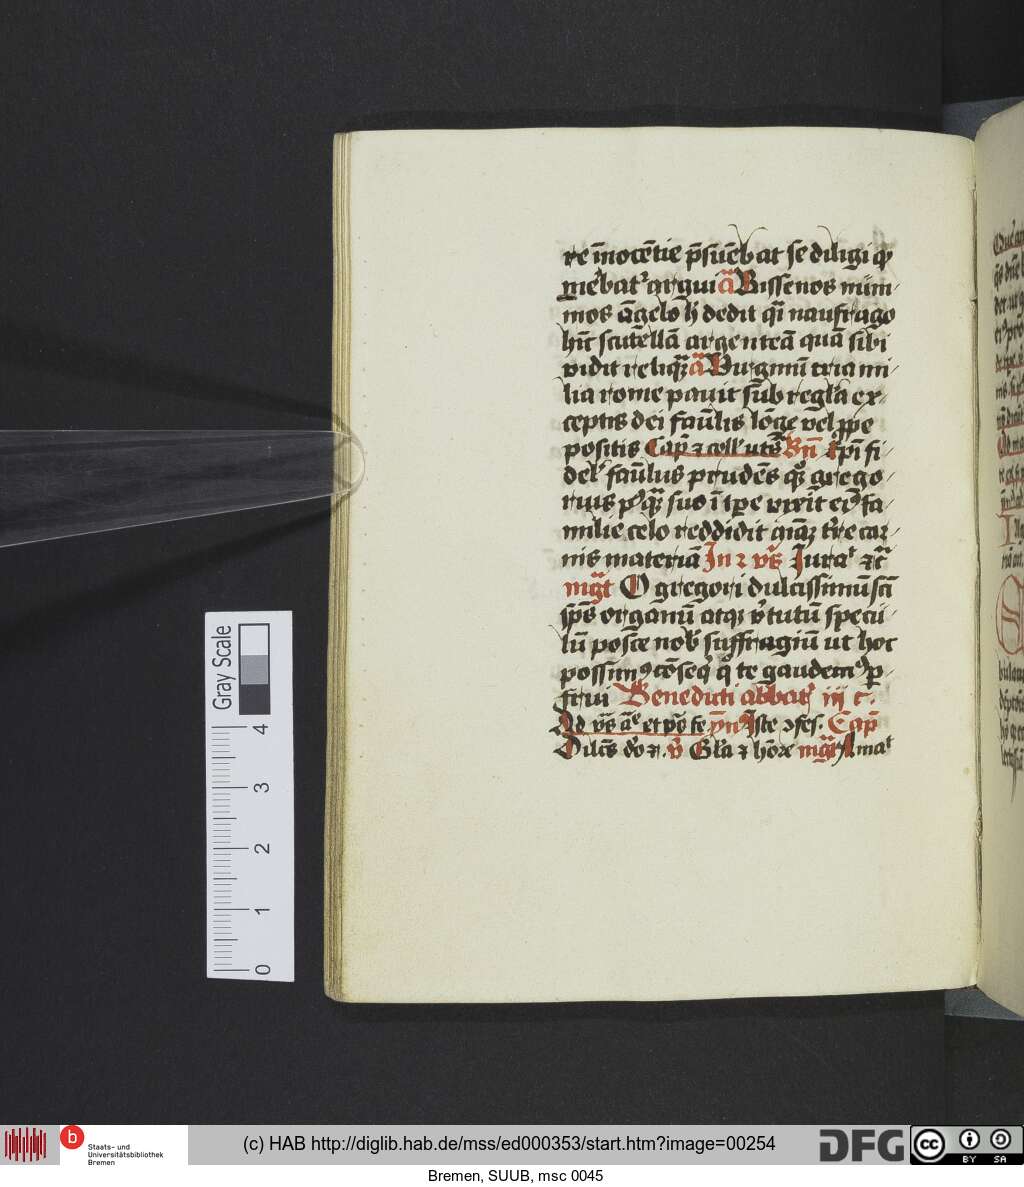 re īnocētie p̄sūebat se diligi qͥ
meͥbatʳ argui ā Bissenos num
mos āgelo ħ dedit qͥ naufrago
hūc scutellā argenteā quā sibi
vidit reliqͣꝫ ā Virginū tria mi
lia rome pavit sūb regla ex
ceptis dei faūlis lōge vel ꝓpe
positis Capͥ ⁊ coll' ut sͣ Bn̄ xp̄i fi
delͥ faūlus prudēs qͥ grego
rius pͥꝰqͣꝫ suo ī tp̄e vixit eiꝰ fa
milie celo reddidit
nis materiā In 2 vͥs Jura' ⁊cͣ
mgͣt O gregori dulcissimū scī
sp̄s organū atqꝫ v̓tutū specu
lū posce nobͥ suffragiū ut hoc
possimꝰ cōseqͥ qͦ te gaudemꝰ ꝑ
frui Benedicti abbatͥ iij c.
Ad vͥs aͣ et pͦ fe ymͥ Iste ↄfes. Capͥ
Dilcͥs dō ⁊. v̓ Glͣa ⁊ hōre mgͣt A maͥ
Gray Scale
0 1 2 3 4
b Staats- und
Universitätsbibliothek
Bremen
(c) HAB http://diglib.hab.de/mss/ed000353/start.htm?image=00254
DFG
cc BY SA
Bremen, SUUB, msc 0045